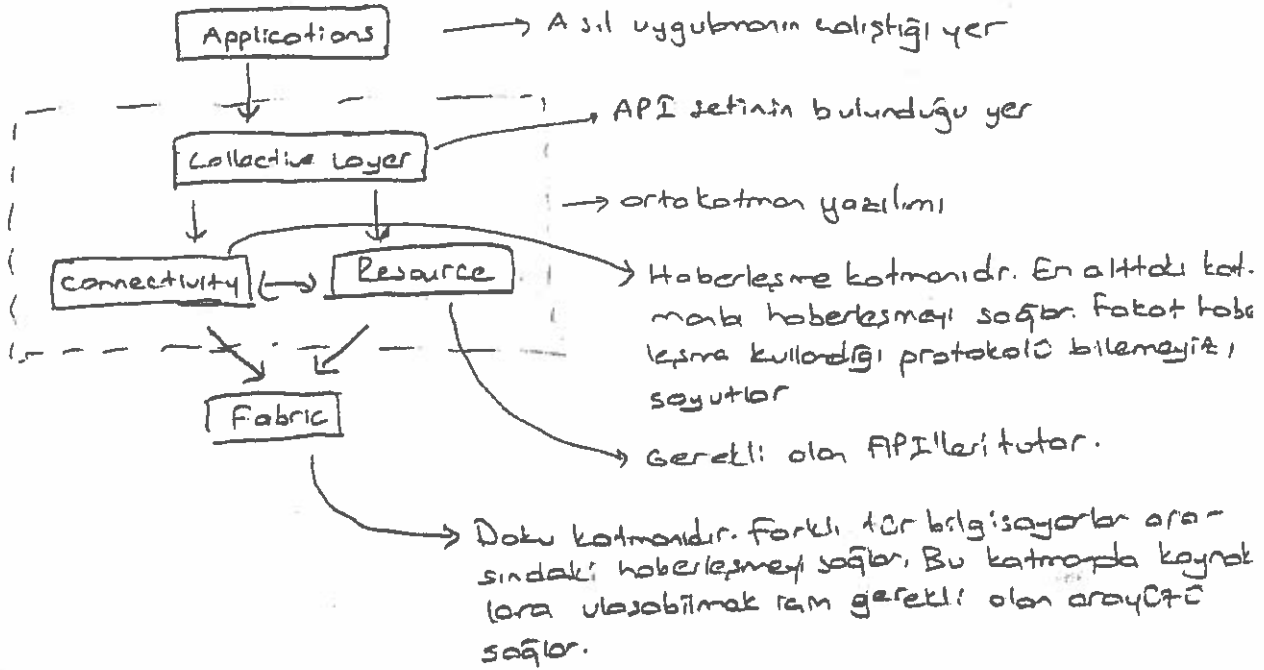 Applications
Asıl uygulamanın çalıştığı yer
API setinin bulunduğu yer
Collective Layer
ortakatman yazılımı
Connectivity
Resource
Haberleşme katmanıdır. En alttaki kat-
manla haberleşmeyi sağlar. Fakat habe
leşme kullandığı protokolü bilemeyiz,
soyutlar
Fabric
Gerekli olan API'leri tutar.
Doku katmanıdır. Farklı tür bilgisayarlar ara-
sındaki haberleşmeyi sağlar. Bu katmanda kaynak
lara ulaşabilmek için gerekli olan arayüzü
sağlar.